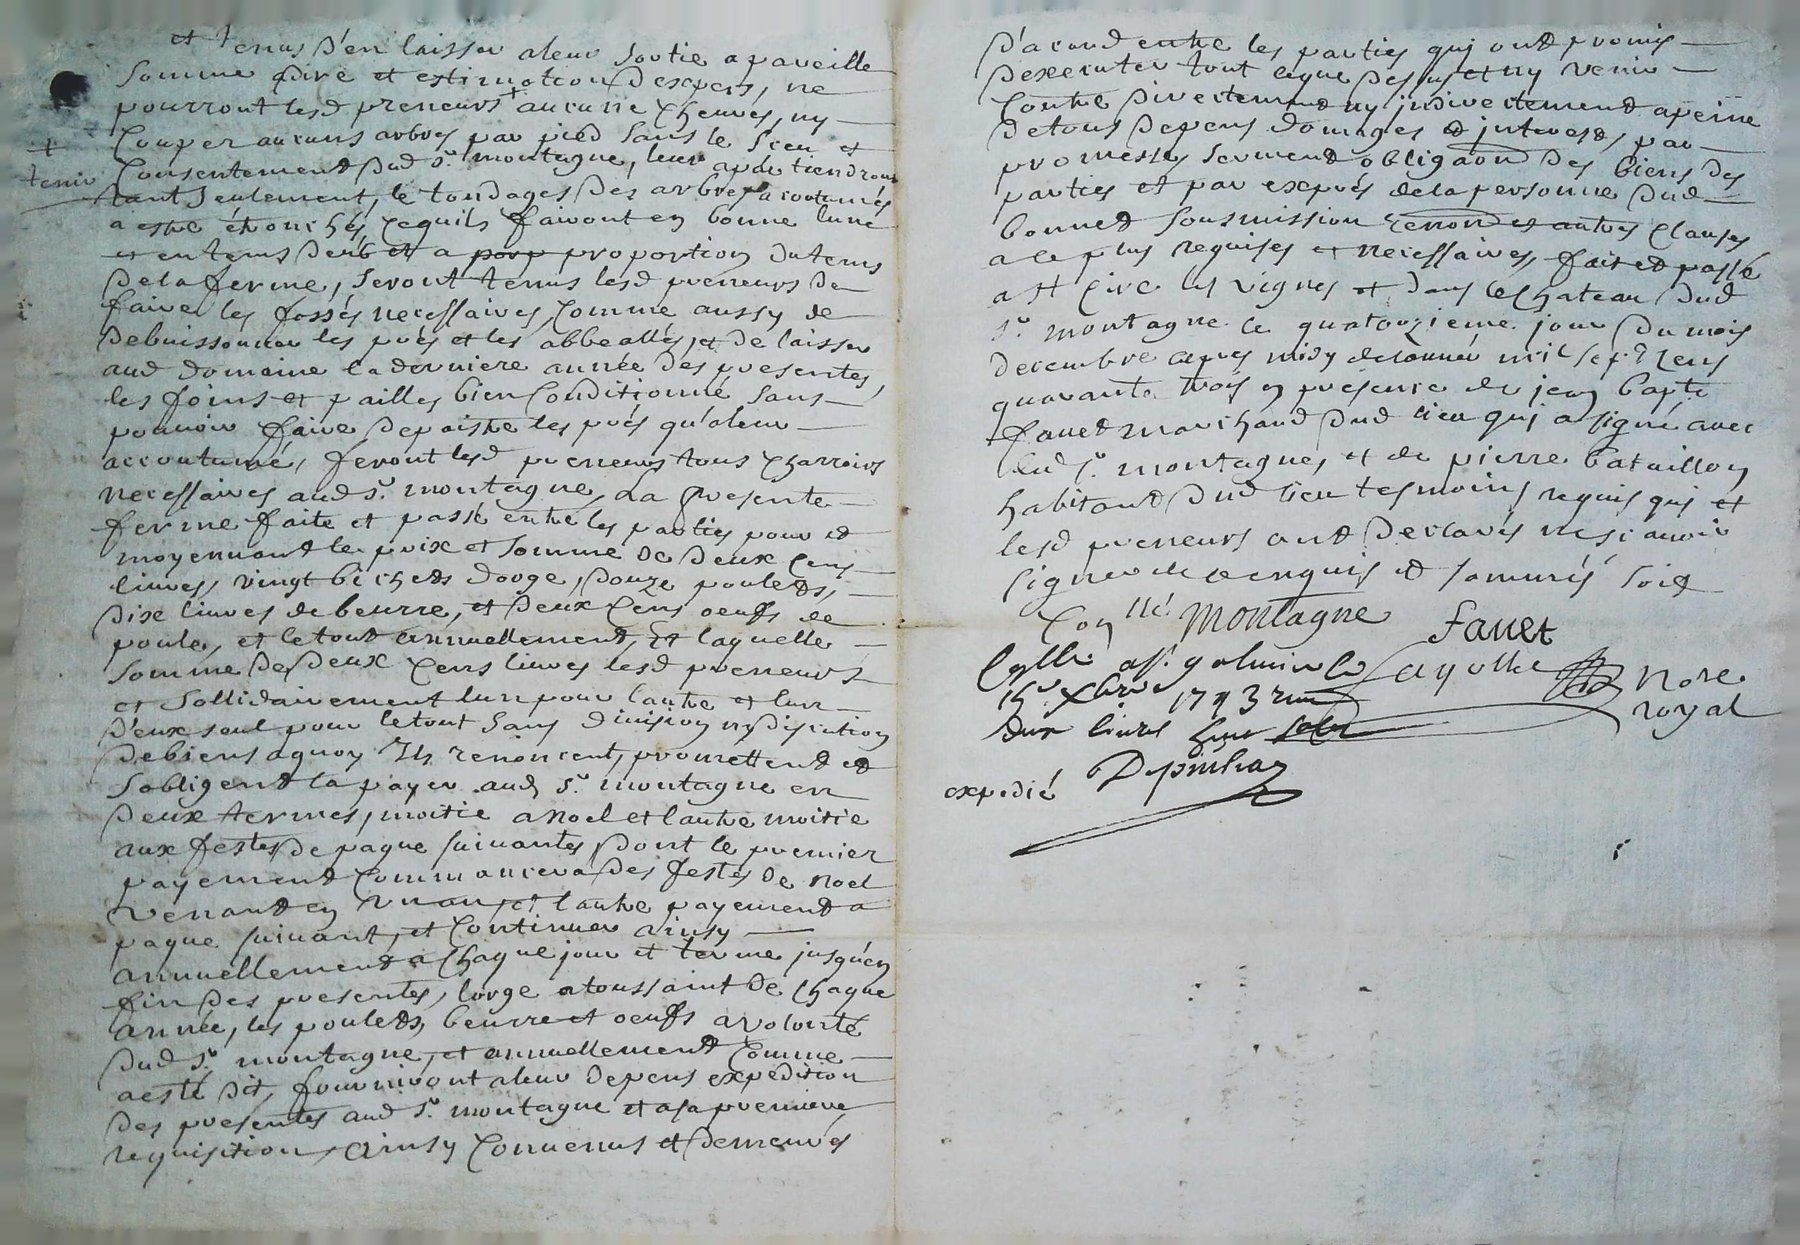 et tenus d'en laisser aleur sortie a pareille
somme dire et estimation d'expers, ne
pourront lesd preneurs + aucune chevres, ny
couper aucuns arbres par pied sans le sceu et
+
tenir
consentement dud sr. montagne, leur apartiendront
tant seulement, le tondages des arbres acoutumés
a estre étronchés, cequils fairont en bonne lune
et en tems deub et a porp proportion du tems
dela ferme, seront tenus lesd preneurs de
faire les fossés necessaires, comme aussy de
debuissonner les prés et les abbeallés, et de laisser
aud domaine la derniere année des presentes,
les foins et pailles bien conditionné sans
pouvoir faire depaistre les prés qu'aleur
accoutumé, feront lesd preneurs tous charrois
necessaires aud sr. montagne, la presente
ferme faite et passé entre les parties pour et
moyennant le prix et somme de deux cens
livres, vingt bichets dorge, douze poulets,
dix livres de beurre, et deux cens oeufs de
poule, et le tout annuellement, Et laquelle
somme de deux cens livres lesd preneurs
et sollidairement lun pour lautre et lun
d'eux seul pour letout sans division ny discution
debiens aquoy Ils renoncent, promettent et
sobligent la payer aud sr. montagne en
deux termes, moitie a noel et lautre moitie
aux festes de paque suivantes, dont le premier
payement commancera des festes de noel
venant en un an, et lautre payement a
paque suivant, et continuer ainsy
annuellement a chaque jour et terme jusqu'en
fin des presentes, lorge a toussaint de chaque
année, les poulets, beurre et oeufs a volonté
dud sr. montagne, et annuellement comme
a esté dit, fourniront aleur depens expedition
des presentes aud sr. montagne et asa premiere
requisition, ainsy convenus et demeurés
d'acord entre les parties qui ont promis
dexecuter tout ceque dessus et ny venir
contre directement ny indirectement apeine
detous depens domages et interests, par
promesses serment obligaôn des biens des
parties et par exprés dela personne dud
bonnet sousmission renonôn et autres clauses
a ce plus requises et necessaires, fait et passé
a St Cire les vignes et dans le chateau dud
sr. montagne le quatorzieme jour du mois
decembre apres midy delannée mil sept cens
quarante trois en présence de jean bapte
favet marchand dud lieu qui a signé avec
led sr. montagne, et de pierre bataillon
habitant dud lieu tesmoins requis qui et
lesd preneurs ont declarés ne scavoir
signer de ce enquis et sommés soit
Conlle. Montagne favet
Cylle a St galmier le
15e Xbre 1743 reçu
deux livres huit sols
Cayolle Nore
royal
expedié Depinhac